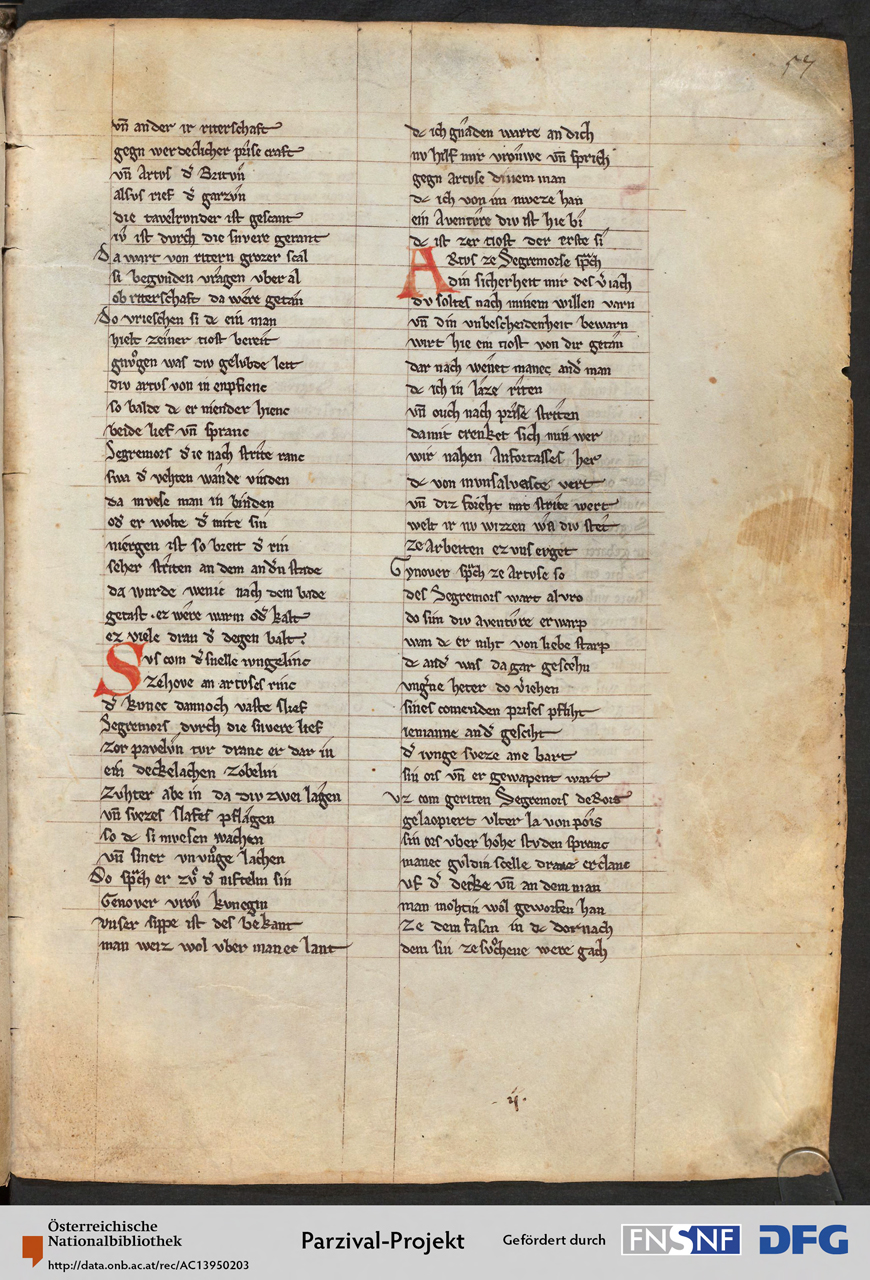 57
vn̄ ander ir riterschaft
gegn werdeclicher prîse craft
vn̄ Artvs d̕ Britvn̄
alsvs rief d̕ garzvn
die tavelrvnder ist gescant
iv̂ ist dvrch die snvere gerant
Da wart von ritern grozer scal
si begvnden vrâgen vber al
ob riterschaft da wêre getân
Do vrieschen si dc ein man
hielt zeiner tiost bereit
gnv̊gen was div gelvbde leit
div artvs von in enpfienc
so balde dc er niender hienc
beide lief vn̄ spranc
Segremors d̕ ie nach strîte ranc
swa d̕ vehten wânde vinden
da mvese man in binden
od̕ er wolte d̕ mite sin
niergen ist so breit d̕ rin
seher strîten an dem andn̄ stade
da wurde wenic nâch dem bade
getast · ez wêre warm od̕ kalt
ez viele dran d̕ degen balt.
Svs com d̕ snelle ivngelinc
Zehove an artvses rinc
d̕ kvnec dannoch vaste slief
Segremors dvrch die snvere lief
zor pavelvn tvr dranc er dar in
ein deckelachen zobelin
Zvhter abe in da div zwei lâgen
vn̄ svezes slafes pflâgen
so dc si mvesen wachen
vn̄ siner vnvv̊ge lachen
Do sp̄ch er zv̊ d̕ niftelin sin
Genover vrov̂ kvnegin
vnser sippe ist des bekant
man weiz wol vber manec lant
dc ich gnâden warte an dich
nv hilf mir vrov̂we vn̄ sprich
gegn artvse dinem man
dc ich von im mveze han
ein Aventv̂re div ist hie bi
dc ist zer tiost der erste si
Artvs ze Segremorse sp̄ch
din sicherheit mir des v̕iach
dv soltes nach minem willen varn
vn̄ din vnbescheidenheit bewarn
wirt hie ein tiost von dir getân
dar nach wênet manec and̕ man
dc ich in lâze riten
vn̄ ouch nach prîse strîten
da mit crenket sich min wer
wir nahen Anfortasses her
dc von mvnsalvesce vert
vn̄ diz foreht mit strîte wert
welt ir nv wizzen wâ div stet
ze Arbeiten ez vns erget
Gynover sp̄ch ze Artvse so
des Segremors wart al vro
do sim div Aventv̂re erwarp
wan dc er niht von liebe starp
dc and̕ was da gar geschehn
vng̕ne heter do v̕iehen
sines comenden prîses pfliht
iemanne and̕ gesciht
d̕ ivnge sveze âne bart
sin ors vn̄ er gewapent wart
Vz com geriten Segremors deRois
gelaopiert vlter la von pôis
sin ors vber hohe stvden spranc
manec gvldin scelle dranne erclanc
vf d̕ decke vn̄ an dem man
man mohtin wol geworfen han
Ze dem fasan in dc dornach
dem sin ze sv̊chene were gach
· ij ·
Österreichische
Nationalbibliothek
http://data.onb.ac.at/rec/AC13950203
Parzival-Projekt
Gefördert durch
FNSNF
DFG